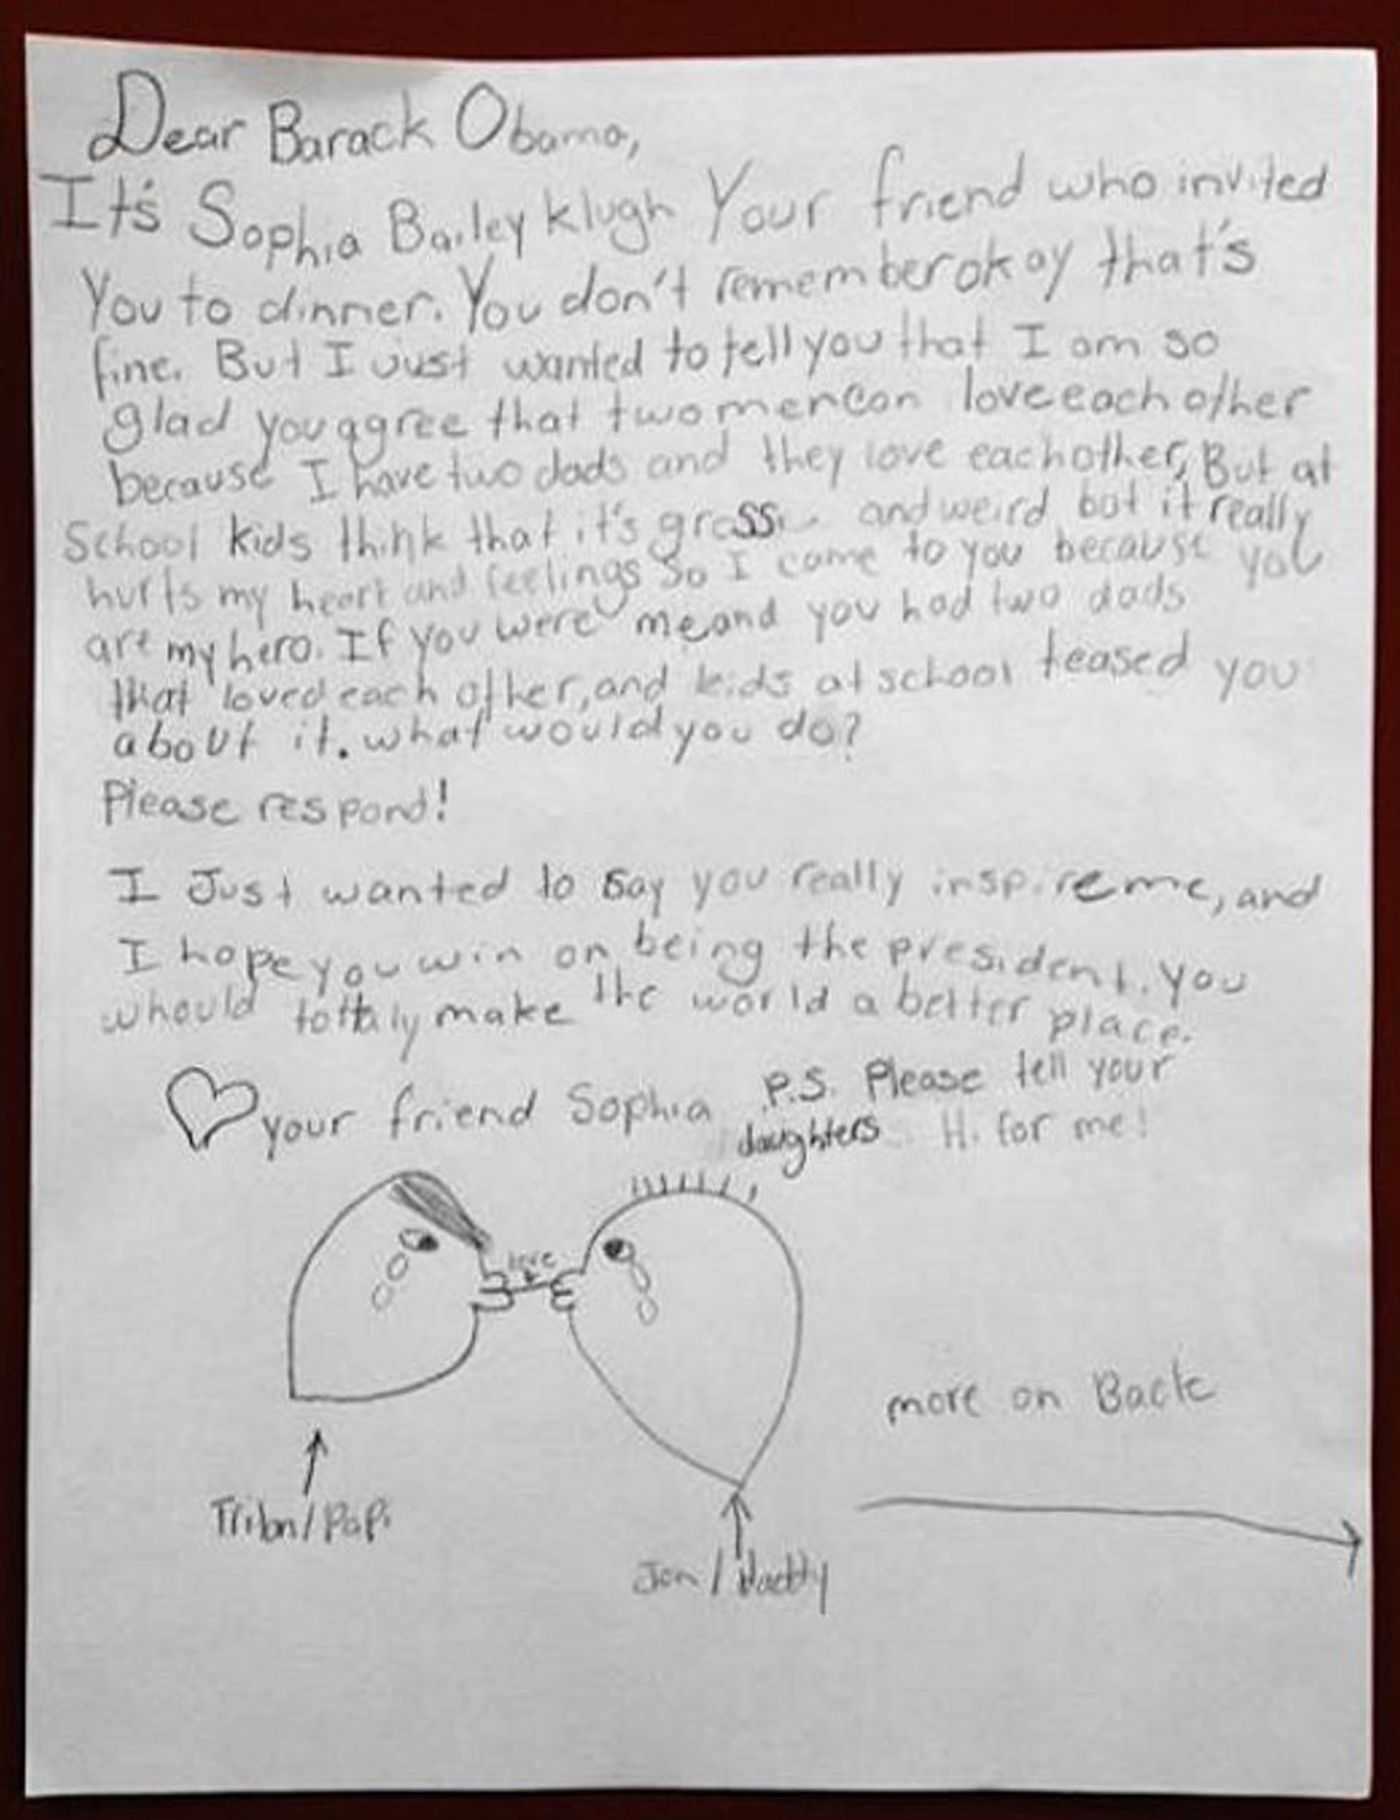 Dear Barack Obama,
It's Sophia Bailey Klugh Your friend who invited
You to dinner. You don't remember okay that's
fine. But I Just wanted to tell you that I am so
glad you agree that two men can love each other
because I have two dads and they love each other, But at
School kids think that it's gross and weird but it really
hurts my heart and feelings So I come to you because you
are my hero. If you were me and you had two dads
that loved each other, and kids at school teased you
about it. what would you do?
Please respond!
I Just wanted to say you really inspire me, and
I hope you win on being the president. You
whould tottaly make the world a better place.
your friend Sophia
P.S. Please tell your
daughters Hi for me!
love
more on Back
/Papi
Jon/Daddy